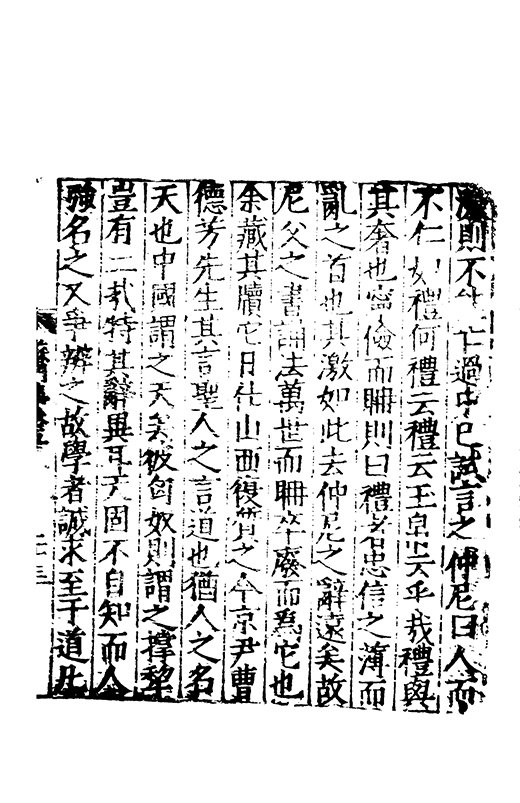 激則不能亡過中已試言之仲尼曰人而
不仁如禮何禮云禮云玉帛云乎哉禮與
其奢也寧儉而聃則曰禮者忠信之薄而
亂之首也其激如此去仲尼之辭遠矣故
尼父之書誦法萬世而聃卒廢而爲它也
余藏其牘它日仕山西復質之今京尹曹
德芳先生其言聖人之言道也猶人之名
天也中國謂之天矣彼匈奴則謂之撑犂
豈有二哉特其辭異耳天固不自知而人
強名之又爭辨之故學者誠求至于道此